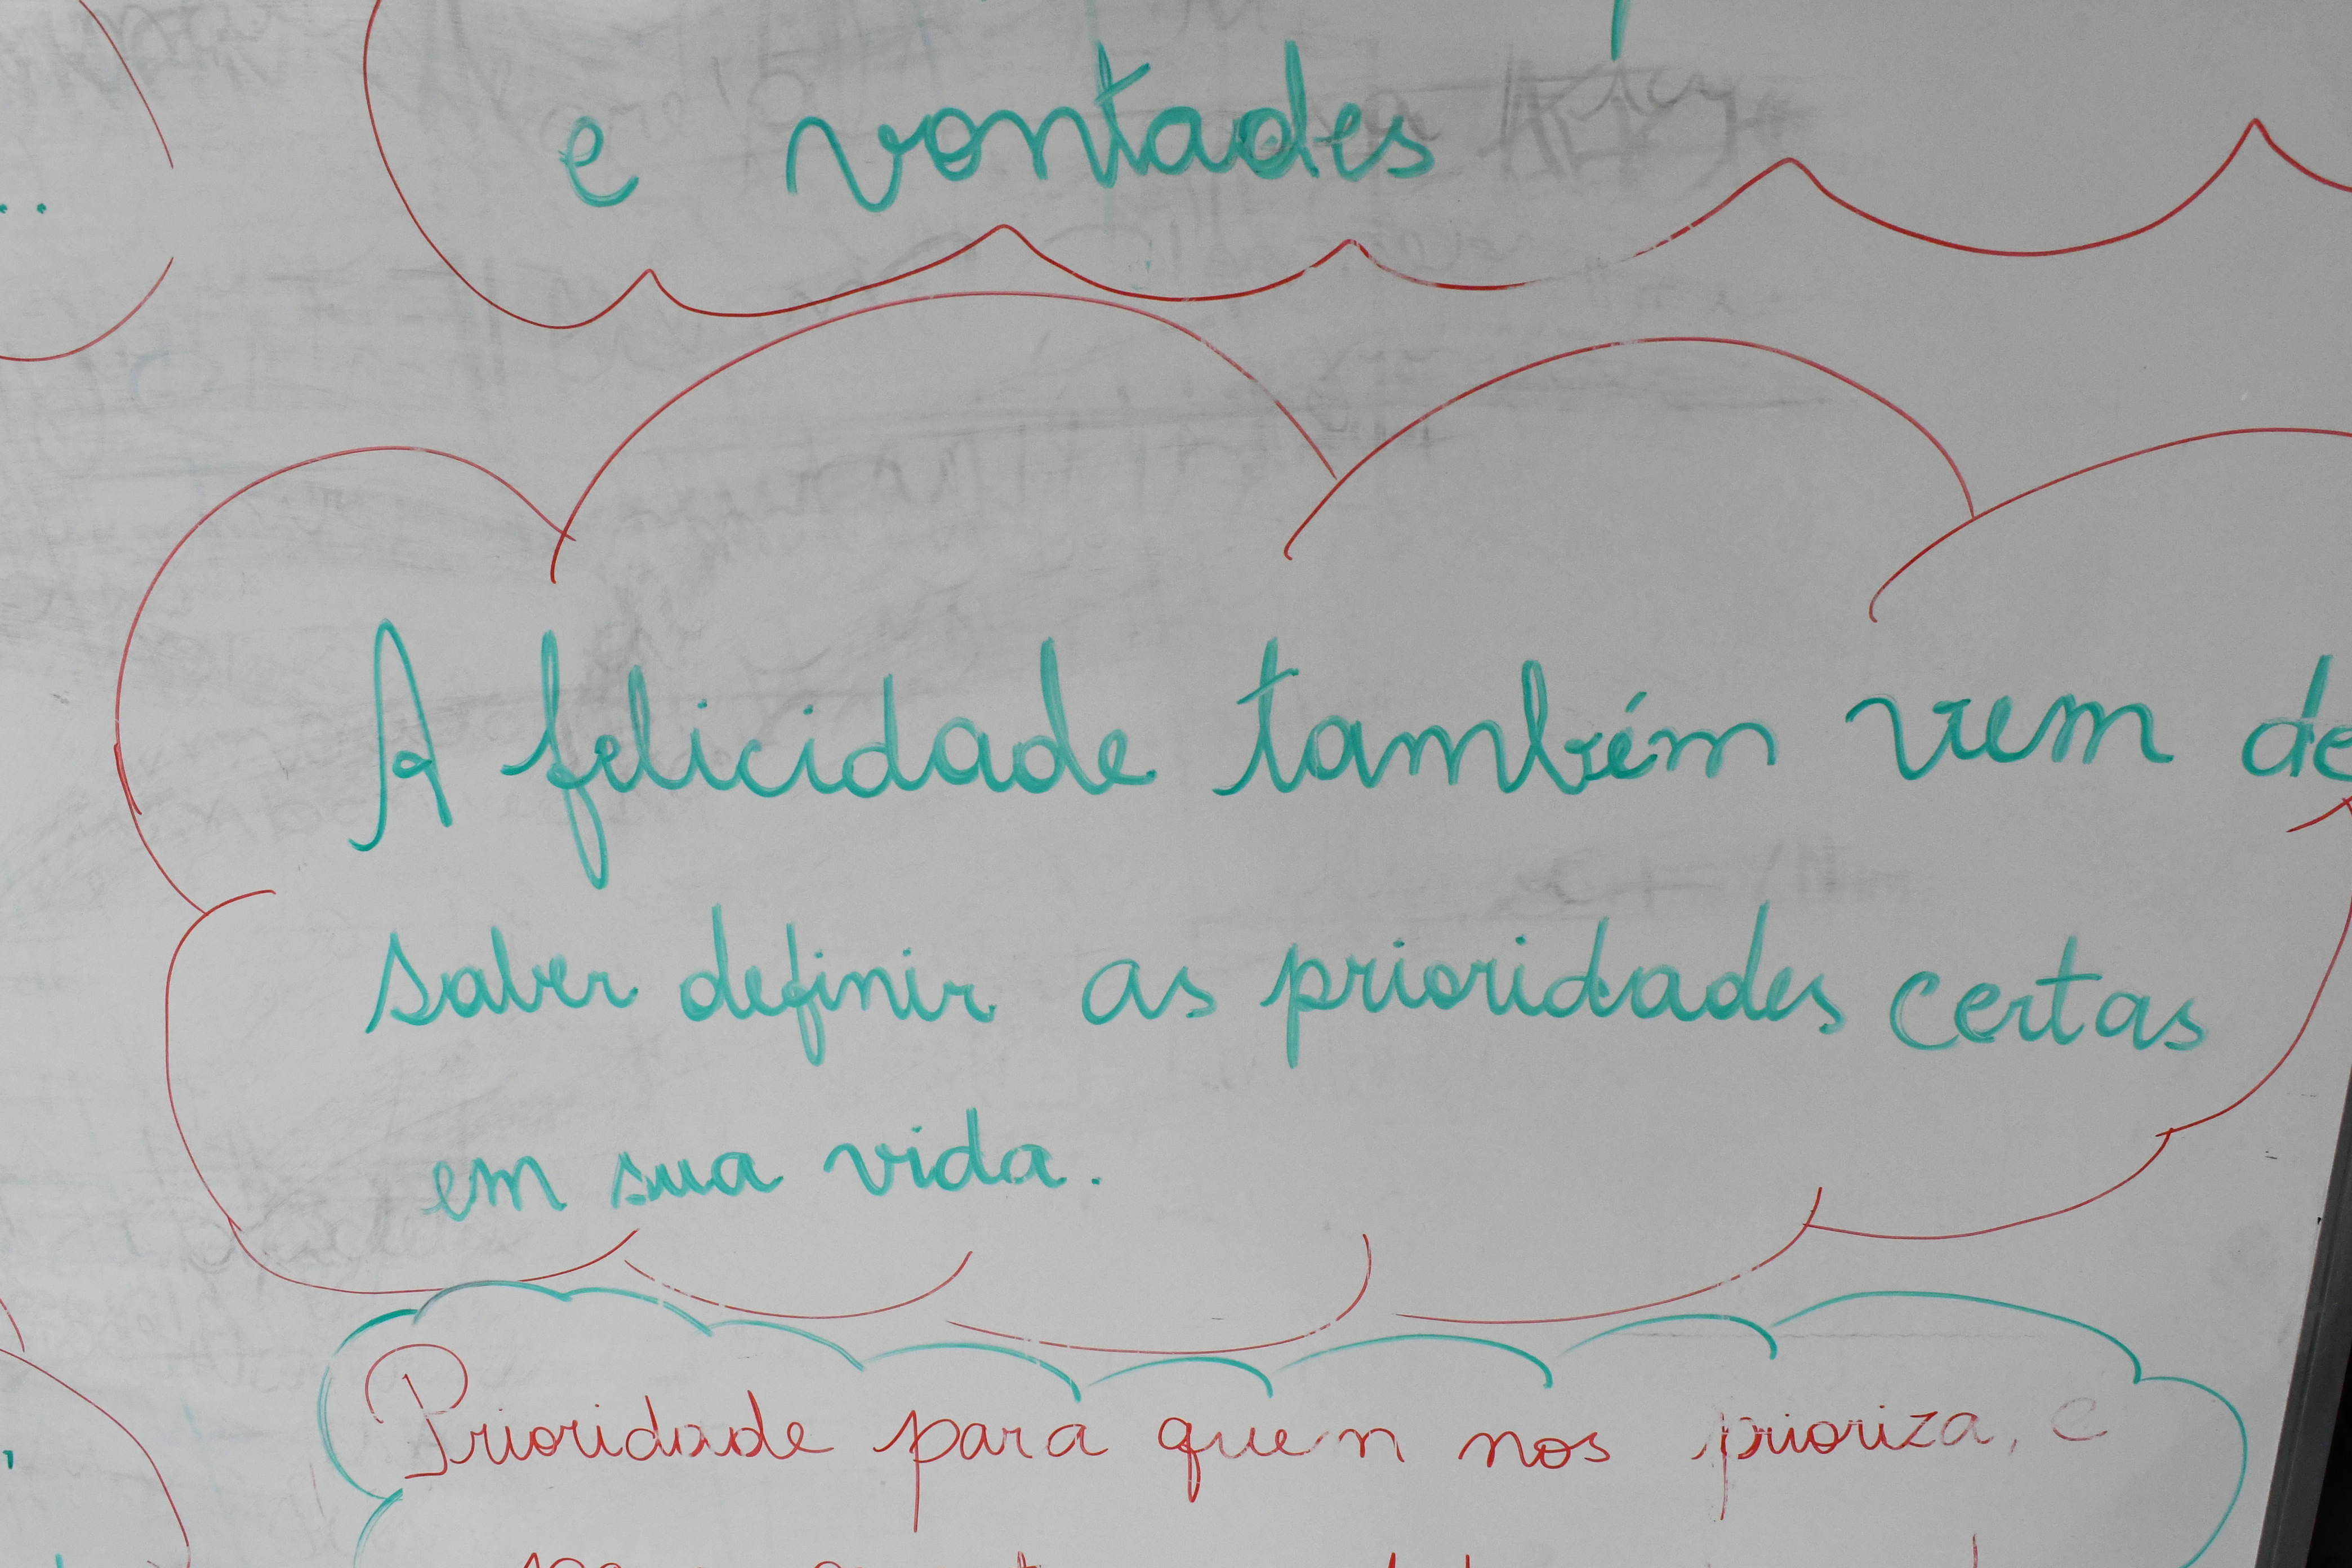 e vontades
A felicidade também vem de
saber definir as prioridades certas
em sua vida.
Prioridade para quem nos prioriza, e